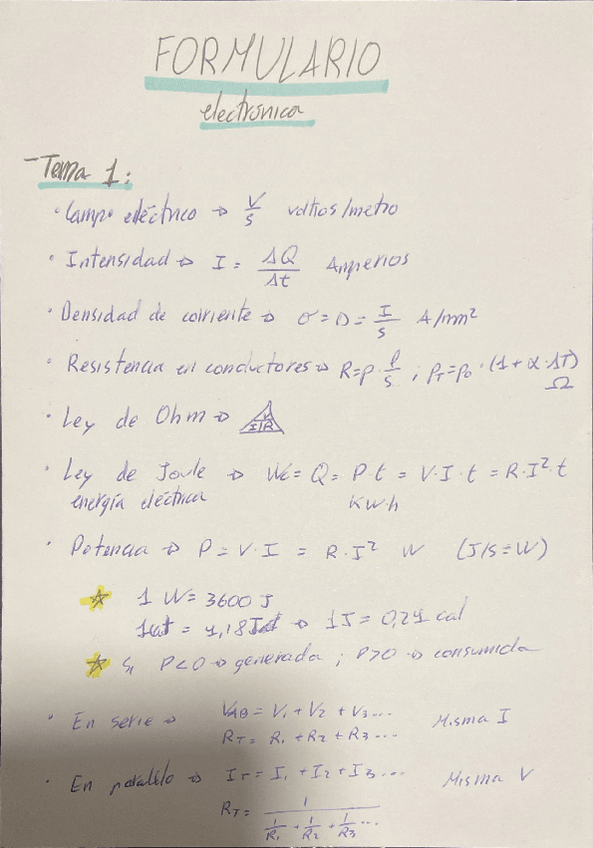 FORMULARIO
electrónica
- Tema 1:
· Campo eléctrico → V/s voltios/metro
· Intensidad → I = ΔQ/Δt Amperios
· Densidad de corriente → σ = D = I/s A/mm²
· Resistencia en conductores → R = ρ · l/s ; ρT = ρ0 · (1 + α · ΔT)
Ω
· Ley de Ohm → V I R
· Ley de Joule → We = Q = P·t = V·I·t = R·I²·t
energía eléctrica KWh
· Potencia → P = V·I = R·I² W (J/s = W)
1 W = 3600 J
1cal = 4,18 J → 1J = 0,24 cal
Si P<0 → generada ; P>0 → consumida
· En serie → VAB = V1 + V2 + V3... Misma I
RT = R1 + R2 + R3...
· En paralelo → IT = I1 + I2 + I3... Misma V
RT = 1/(1/R1 + 1/R2 + 1/R3...)